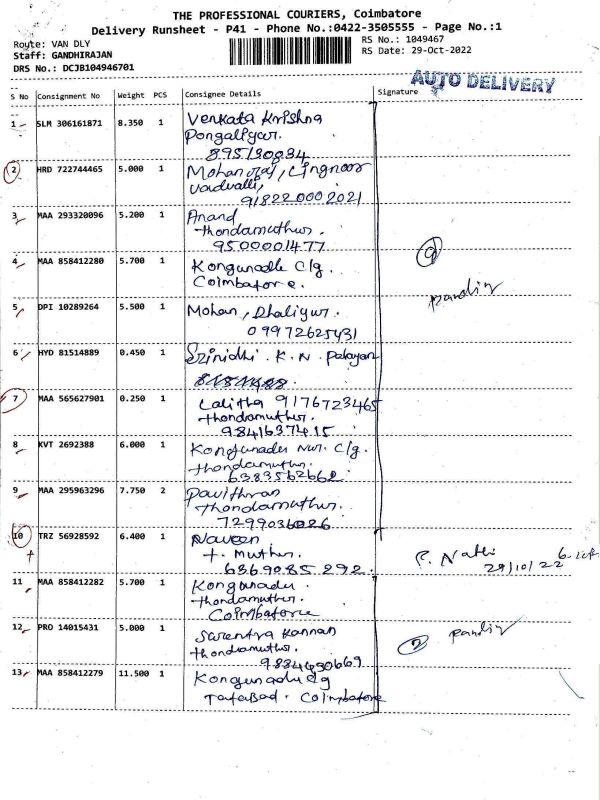 THE PROFESSIONAL COURIERS, Coimbatore
Delivery Runsheet - P41 - Phone No.:0422-3505555 - Page No.:1
Royte: VAN DLY
RS No.: 1049467
Staff: GANDHIRAJAN
RS Date: 29-Oct-2022
DRS No.: DCJB104946701
AUTO DELIVERY
S No Consignment No Weight PCS Consignee Details Signature
1 SLM 306161871 8.350 1 Venkata Krishna
Pongaliyur.
895130034
2 HRD 722744465 5.000 1 Mohan raj, Lingnoor
Vadvalli,
918220002021
3 MAA 293320096 5.200 1 Anand
thondamuthur.
9500001477
4 MAA 858412280 5.700 1 Kongunadu Clg.
Coimbatore.
9
pandiy
5 DPI 10289264 5.500 1 Mohan, Dhaliyur.
09972625431
6 HYD 81514889 0.450 1 Srinidhi. K. N. Palayan
7 MAA 565627901 0.250 1 Lalitha 9176723465
thondamuthur.
9841637415
8 KVT 2692388 6.000 1 Kongunadu Nur. Clg.
thondamuthur.
6383562662
9 MAA 295963296 7.750 2 Pavithran
thondamuthur.
7299036026
10 TRZ 56928592 6.400 1 Naveen
t. Muthur.
6369085292.
29/10/22
11 MAA 858412282 5.700 1 Kongunadu.
thondamuthur.
Coimbatore
12 PRO 14015431 5.000 1 Sarentra Kannan
thondramuthur.
9884490669
2 pandiy
13 MAA 858412279 11.500 1 Kongunadu clg
Tatabad. Coimbatore